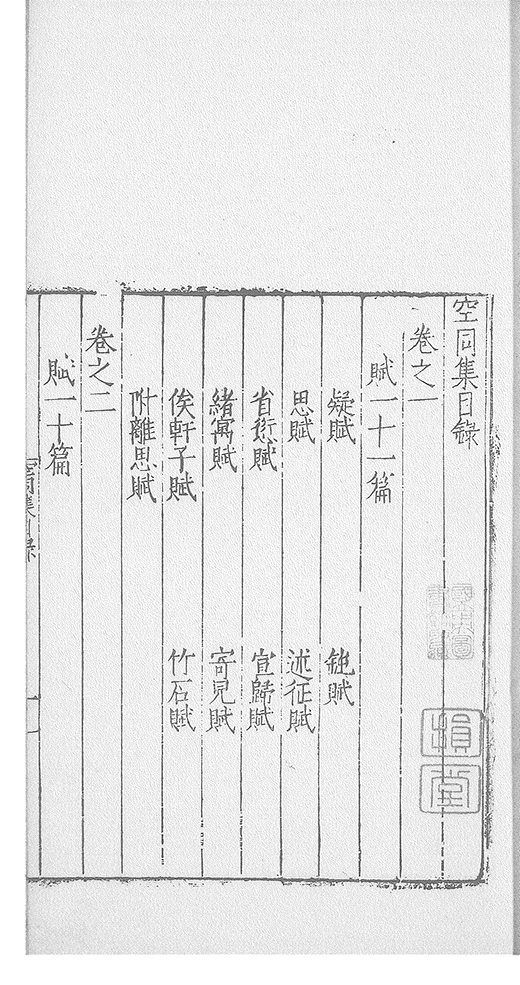 空同集目錄
卷之一
賦一十一篇
疑賦 鈍賦
思賦 述征賦
省愆賦 宣歸賦
緒寓賦 寄兒賦
俟軒子賦 竹石賦
附離思賦
卷之二
賦一十篇
空同集目録
一
塤堂